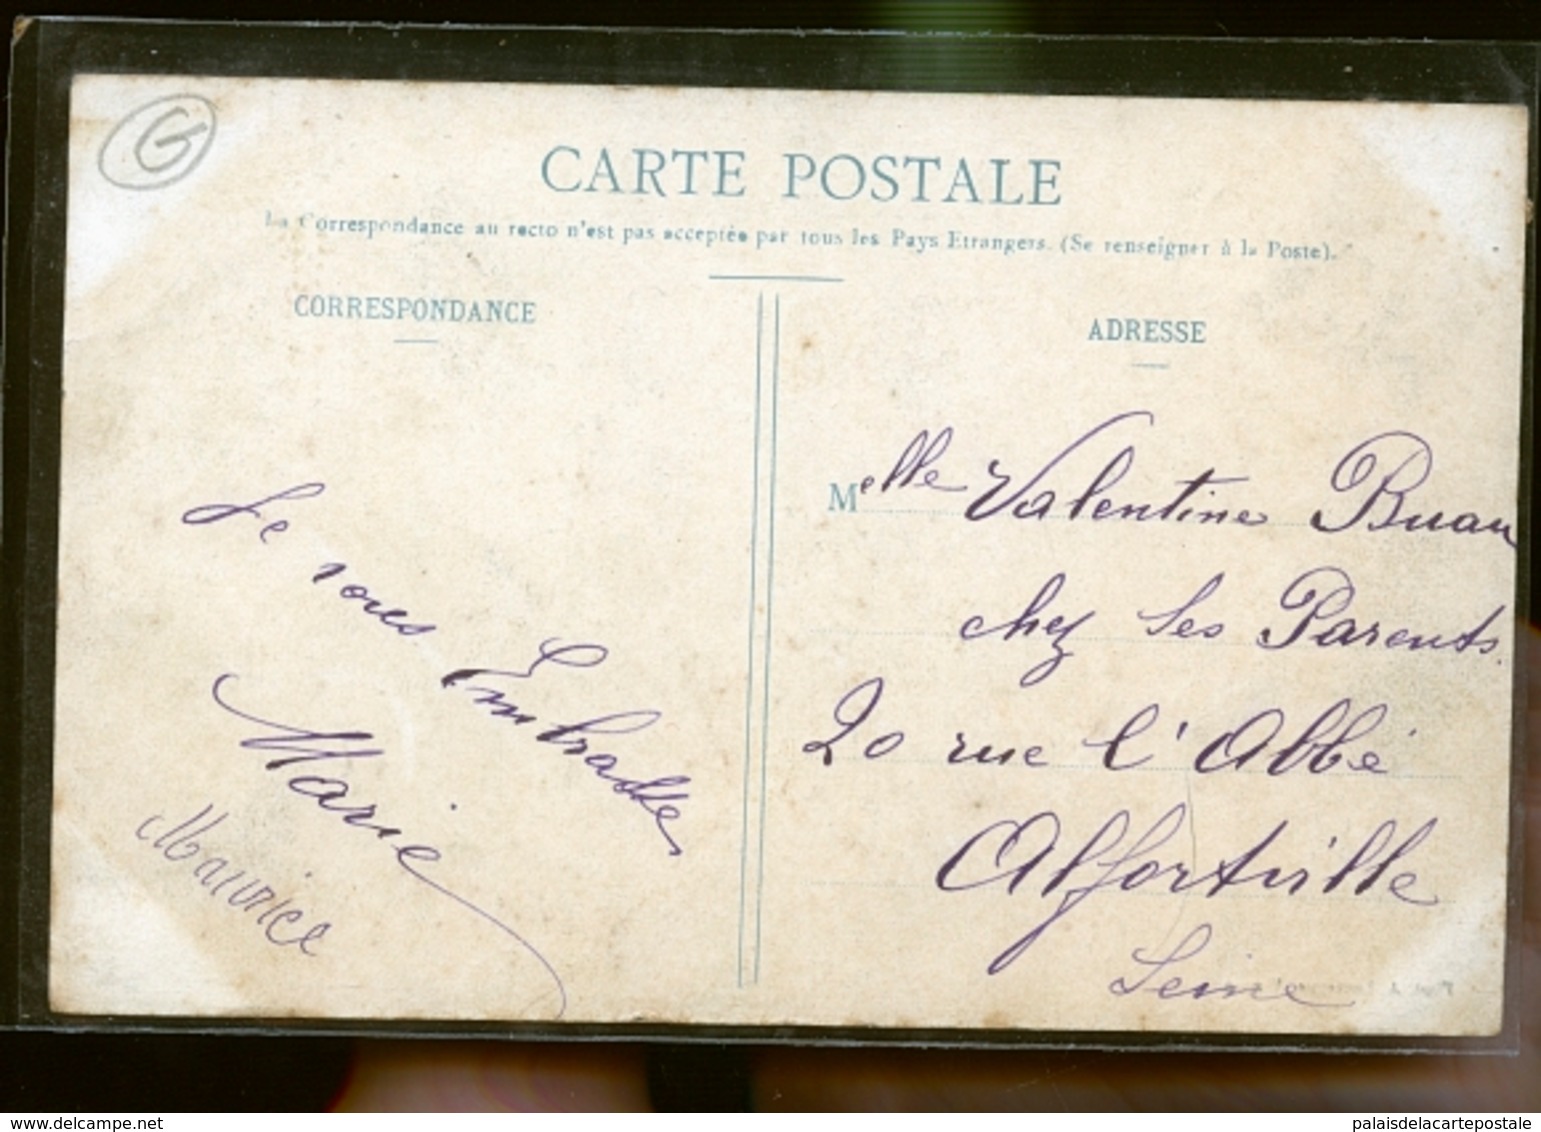 G
CARTE POSTALE
La Correspondance au recto n'est pas acceptée par tous les Pays Etrangers. (Se renseigner à la Poste).
CORRESPONDANCE
Je vous Embrasse
Marie
Maurice
ADRESSE
Melle Valentine Buan
chez ses Parents.
20 rue l'Abbé
Alfortville
Seine
delcampe.net
palaisdelacartepostale